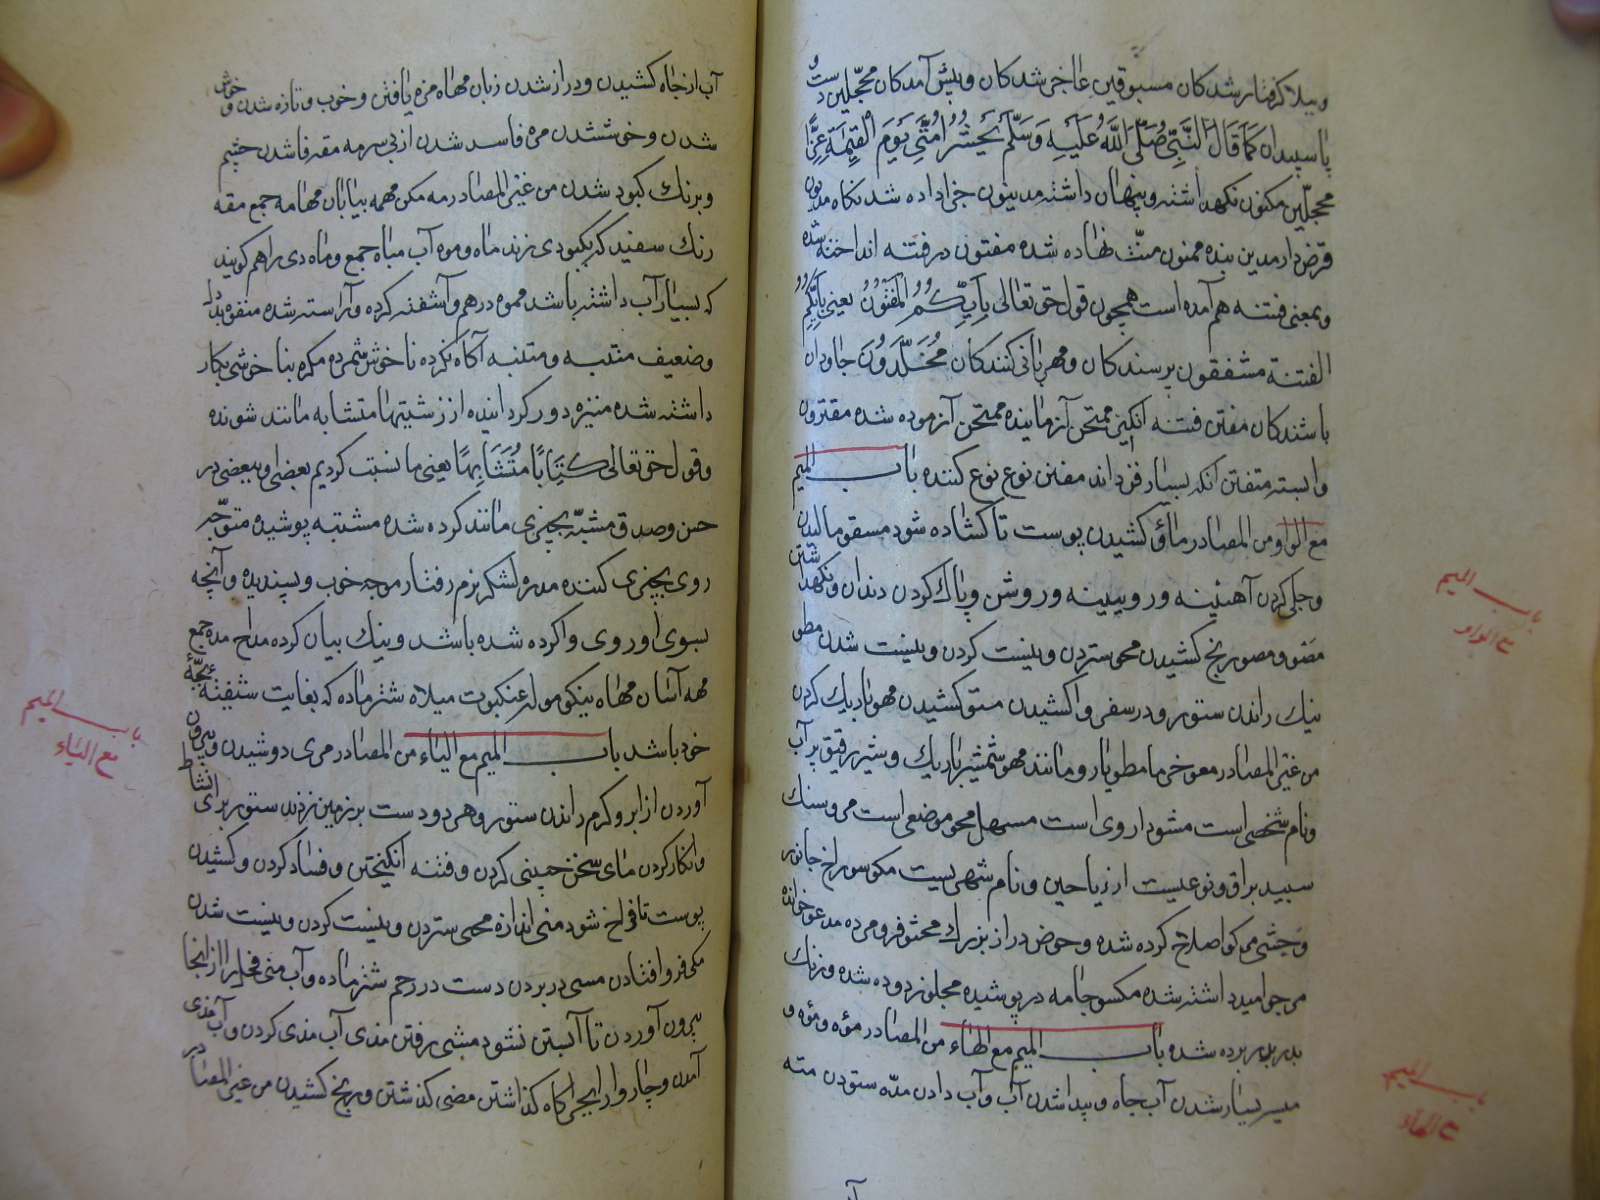 وببلا گرفتار شدگان مسبوقین عاجز شدگان وپیش آمدگان محجلین دست و
پا سپیدان کَمَا قَالَ النَّبِیُّ صَلَّی اللّٰهُ عَلَیْهِ وَسَلَّمَ یُحْشَرُ اُمَّتِی یَوْمَ الْقِیٰمَةِ غُرًّا
محجلین مکنون نگهداشته وپنهان داشته مدینون جزا داده شدگان مدیون
قرض دار مدین بنده ممنون منت نهاده شده مفتون در فتنه انداخته شده
وبمعنی فتنه هم آمده است همچون قول حق تعالی بِاَیِّکُمُ الْمَفْتُوْنُ یعنی بِاَیِّکُمُ
الفتنة مشفقون ترسندگان ومهربانی کنندگان مُخَلَّدُوْنَ جاودان
باشندگان مفتن فتنه انگیز ممتحن آزماینده ممتحن آزموده شده مقترون
وابسته متفنن آنکه بسیار فن داند مفنن نوع نوع کننده باب المیم
مع الواو من المصادر ماؤ کشیدن پوست تا گشاده شود مسقو مالیدن
وجلی کردن آهنینه ورویینه وروشن وپاک کردن دندان ونگهداشتن
مضو ومصو رنج کشیدن محو ستردن ونیست کردن ونیست شدن مطو
نیک راندن ستور ودر سفر واکشیدن متو کشیدن مهو باریک کردن
من غیر المصادر معو خرما مطو یار ومانند مهو شمشیر باریک وشیر رقیق پر آب
ونام شخصی است مشو داروی است مسهل محو موضعی است مرو سنگ
سپید براق ونوعیست از ریاحین ونام شهریست مکو سوراخ جانور
وحشی مرکو اصلاح کرده شده وحوض دراز بزرگ محثو فرو مرده مدعو خوانده
مرجو امید داشته شده مکسو جامه در پوشیده مجلو زدوده شده وزنگ
بدر برده شده باب المیم مع الهاء من المصادر مؤه ومؤه و
میه بسیار شدن آب چاه وپیدا شدن آب وآب دادن مده ستودن مته
باب المیم
مع الواو
باب المیم
مع الهاء
آب از چاه کشیدن ودراز شدن زبان مهاه مزه یافتن وخوب وتازه شدن وخوش
شدن وخوش شدن مره فاسد شدن از بی سرمه مقه فاشدن چشم
وبرنگ کبود شدن من غیر المصادر مه مکن مهمه بیابان مهامه جمع مقه
رنگ سفید که بکبودی زند ماه وموه آب میاه جمع وماه دی را هم گویند
که بسیار آب داشته باشد مموه درهم وآشفته کرده وآراسته شده منفوه بددل
وضعیف منتبه ومتنبه آگاه کرده ناخوش شمرده مکره بناخوشی بکار
داشته شده منیزه دور گرداننده از زشتیها متشابه مانند شونده
وقول حق تعالی کِتَابًا مُتَشَابِهًا یعنی مانسبت کردیم بعضی او ببعضی در
حسن وصدق مشبه بچیزی مانند کرده شده مشتبه پوشیده متوجه
روی بچیزی کننده مدره لشکر بزم رفتار موجه خوب وپسندیده وآنچه
بسوی او روی واکرده شده باشد ونیک بیان کرده مداح مده جمع
مهه آسان مهاه نیکو موله عنکبوت میلاه شتر ماده که بغایت شیفته بچه
خود باشد باب المیم مع الیاء من المصادر مری دوشیدن وبیرون
آوردن از ابر وگرم راندن ستور وهر دو دست بر زمین زدن ستور برای نشاط
وانکار کردن مای سخن چینی کردن وفتنه انگیختن وفساد کردن وکشیدن
پوست تا فراخ شود منی اندازه محی ستردن ونیست کردن ونیست شدن
مکی فرو افتادن مسی در بردن دست در رحم شتر ماده وآب منی فحل را از آنجا
بیرون آوردن تا آبستن نشود مشی رفتن مذی آب مذی کردن وآب مذی
آمدن وچاروا را بچراگاه گذاشتن مضی گذشتن ورنج کشیدن من غیر المصادر
باب المیم
مع الیاء